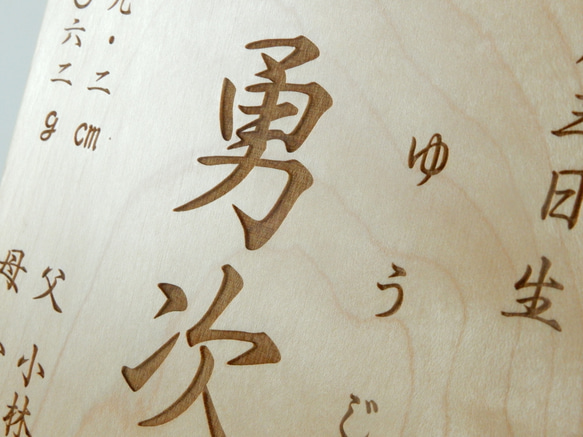 日生
ゆうじ
勇次
九・二cm
六二g
父 小林
母